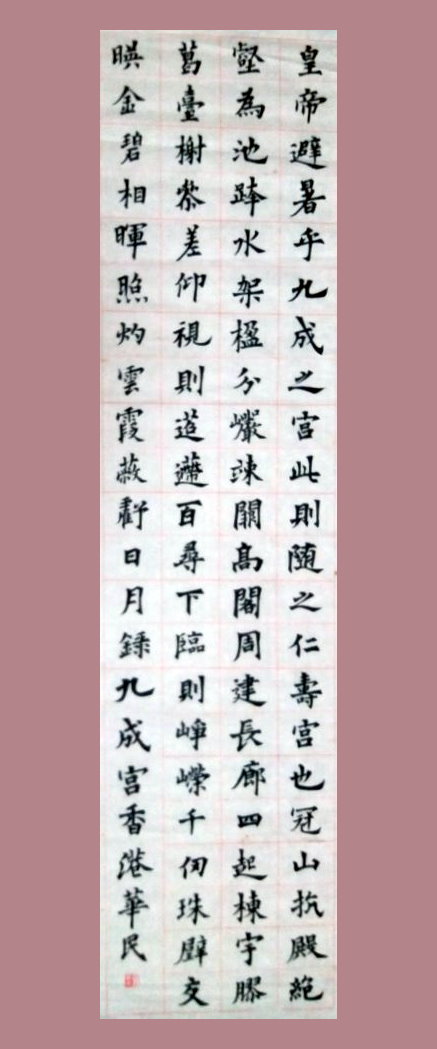 皇帝避暑乎九成之宮此則隨之仁壽宮也冠山抗殿絕
壑為池跨水架楹分巖竦闕高閣周建長廊四起棟宇膠
葛臺榭參差仰視則迢遰百尋下臨則崢嶸千仞珠璧交
暎金碧相暉照灼雲霞蔽虧日月錄九成宮香港華民